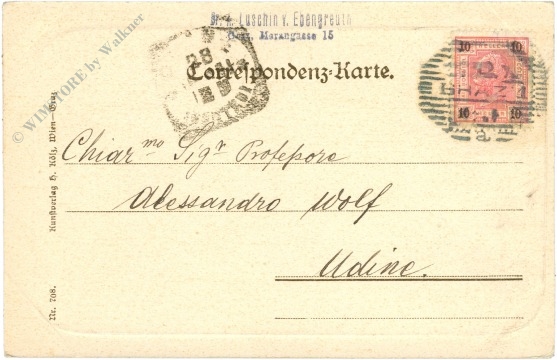 Dr. A. Luschin v. Ebengreuth
Graz, Merangasse 15
Correspondenz-Karte.
28
10 10
10 10
Chiar.mo Sigr Profesore
Alessandro Wolf
Udine.
Kunstverlag H. Kölz, Wien-Graz
Nr. 708.
© WIMSTORE by Walkner